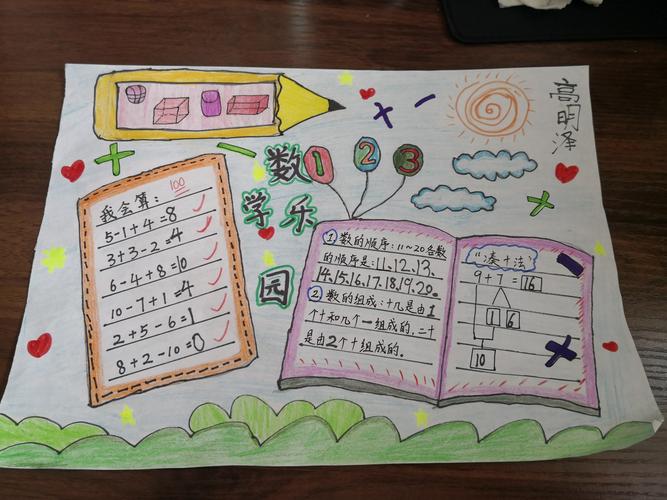 高明泽
数学乐园
1 2 3
我会算： 100
5-1+4=8
3+3-2=4
6-4+8=10
10-7+1=4
2+5-6=1
8+2-10=0
①数的顺序：11~20各数
的顺序是：11、12、13、
14、15、16、17、18、19、20。
②数的组成：十几是由1
个十和几个一组成的，二十
是由2个十组成的。
“凑十法”
9+7=16
1 6
10